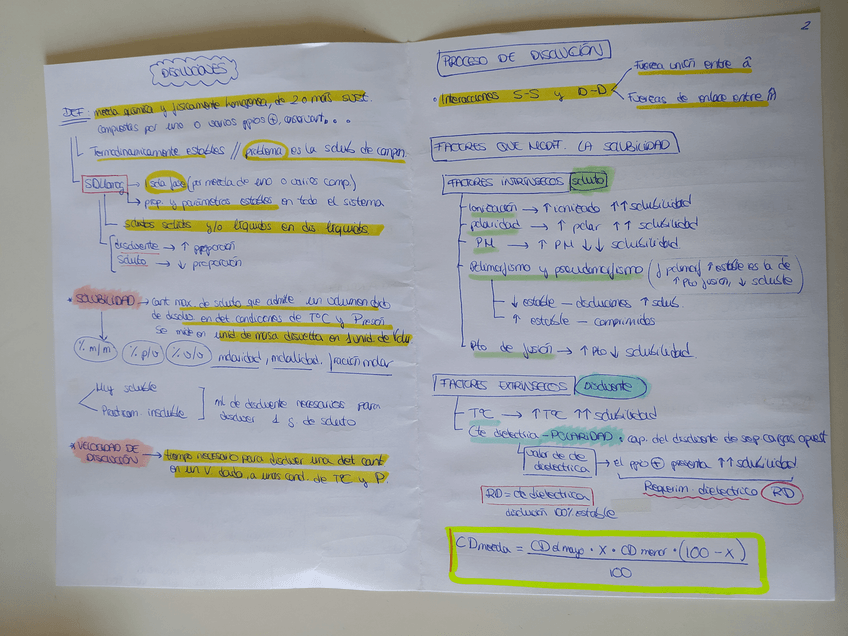 DISOLUCIONES
DEF: mezcla química y físicamente homogénea, de 2 o más sust.
compuestas por uno o varios ppios ⊕, conservant...
Termodinamicamente estables // problema es la solub de compon.
sola fase (por mezcla de uno o varios comp.)
prop. y parámetros estables en todo el sistema
solutos sólidos y/o líquidos en dis líquidos
disolvente → ↑ proporción
soluto → ↓ proporción
* SOLUBILIDAD → cant max. de soluto que admite un volumen det
de disolv en det condiciones de TºC y Presión
Se mide en unid de masa disuelta en 1 unid. de Volu
% m/m % p/v % v/v molaridad, molalidad, fracción molar
Muy soluble
Practicam. insoluble
ml de disolvente necesarios para
disolver 1 g de soluto
* VELOCIDAD DE
DISOLUCIÓN → tiempo necesario para disolver una det cant
en un V. dado, a unas cond. de TºC y P.
2
PROCESO DE DISOLUCIÓN
• Interacciones S-S y D-D
Fuerza unión entre
Fuerzas de enlace entre
FACTORES QUE MODIF. LA SOLUBILIDAD
FACTORES INTRÍNSECOS soluto
Ionización → ↑ ionizado ↑↑ solubilidad
polaridad → ↑ polar ↑↑ solubilidad
PM → ↑ PM ↓↓ solubilidad
Polimorfismo y pseudomorfismo (f polimorf ↑ estable es la de
↑ Pto fusión, ↓ soluble)
↓ estable – disoluciones ↑ solub.
↑ estable – comprimidos
Pto de fusión → ↑ Pto ↓ solubilidad.
FACTORES EXTRÍNSECOS Disolvente
TºC → ↑ TºC ↑↑ solubilidad
Cte dielectrica – POLARIDAD • cap. del disolvente de sep cargas opuest
valor de cte
dielectrica → el ppio ⊕ presenta ↑↑ solubilidad
Requerim dielectrico RD
RD = cte dielectrica
disolución 100% estable
CD mezcla = CD el mayo · X · CD menor · (100 - X)
100